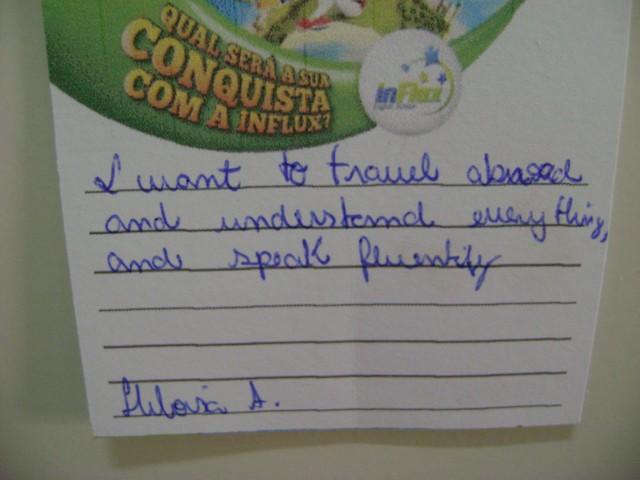 QUAL SERÁ A SUA
CONQUISTA
COM A INFLUX?
inFlux
I want to travel abroad
and understand everything,
and speak fluently
Heloisa A.